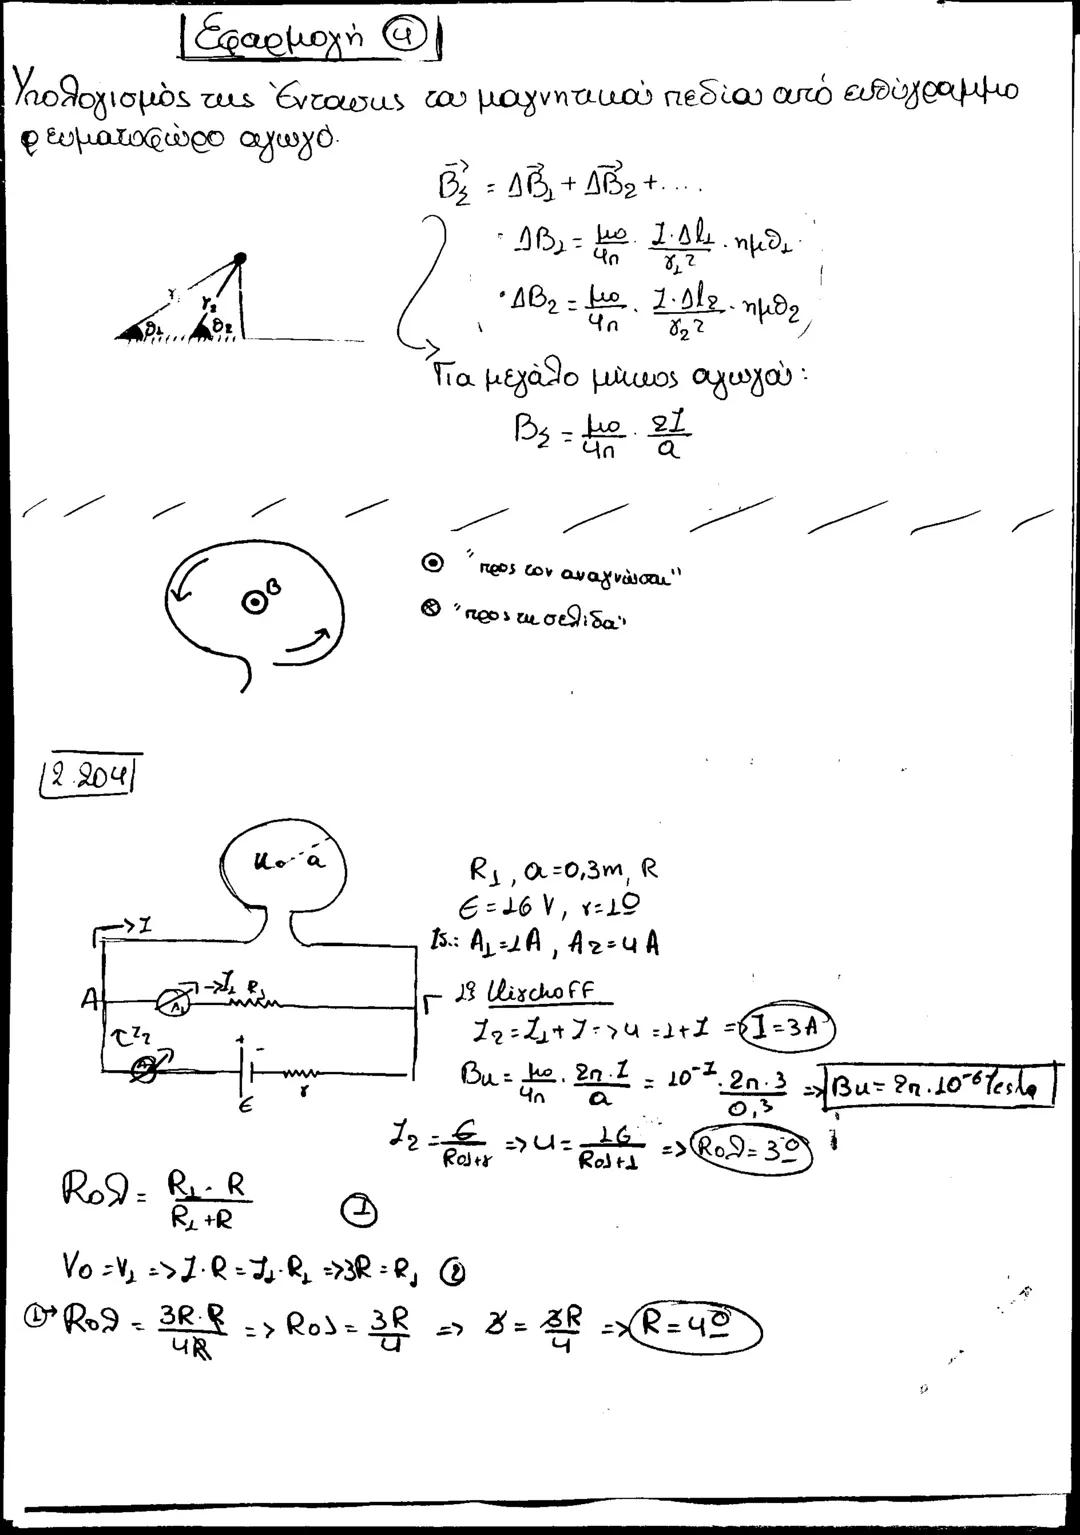 Εφαρμογή ④
Υπολογισμός της Έντασης του μαγνητικού πεδίου από ευθύγραμμο
ρευματοφόρο αγωγό.
B⃗Σ = ΔB⃗1 + ΔB⃗2 + ....
• ΔB1 = μο/4π · I·Δl1/r1² · ημθ1
• ΔB2 = μο/4π · I·Δl2/r2² · ημθ2
r1 r2
θ1 θ2
Για μεγάλο μήκος αγωγού:
BΣ = μο/4π · 2I/a
B
⊙ "προς τον αναγνώστη"
⊗ "προς τη σελίδα"
2.204
K a
R1, a=0,3m, R
ε=16 V, r=1Ω
A1=1A, A2=4A
→I
A →I1 R1 Γ
A1
I2
+ -
ε r
1ος Kirchoff
I2=I1+I => 4=1+I => I=3A
Bκ = μο/4π · 2π·I/a = 10⁻⁷ · 2π·3/0,3 => Bκ = 2π·10⁻⁶ Tesla
I2 = ε/Roλ+r => 4 = 16/Roλ+1 => Roλ=3Ω
Roλ = R1·R/R1+R ①
Vo=V1 => I·R=I1·R1 => 3R=R1 ②
①→ Roλ = 3R·R/4R => Roλ = 3R/4 => 3 = 3R/4 => R=4Ω